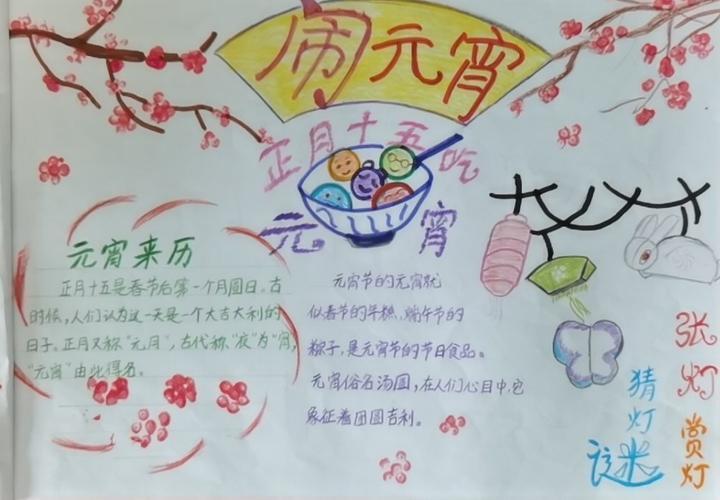 闹元宵
正月十五吃
元宵
元宵来历
正月十五是春节后第一个月圆日。古
时候，人们认为这一天是一个大吉大利的
日子。正月又称"元月"，古代称"夜"为"宵"，
"元宵"由此得名。
元宵节的元宵就
似春节的年糕，端午节的
粽子，是元宵节的节日食品。
元宵俗名汤圆，在人们心目中，它
象征着团圆吉利。
张灯
赏灯
猜灯
谜